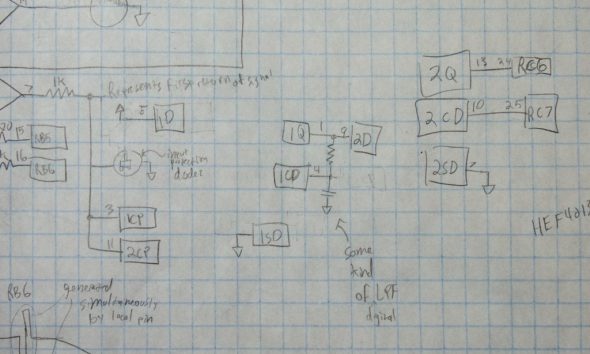 7 1K
Represents first return of signal
4 5 1D
20 15 RB5
16 RB6
input
protection
diodes
3 1CP
11 2CP
1Q 1 9 2D
1CD 4
1SD
some
kind
of LPF
digital
2Q 13 24 RC6
2CD 10 25 RC7
2SD
HEF4013
RB6
generated
simultaneously
by local pin